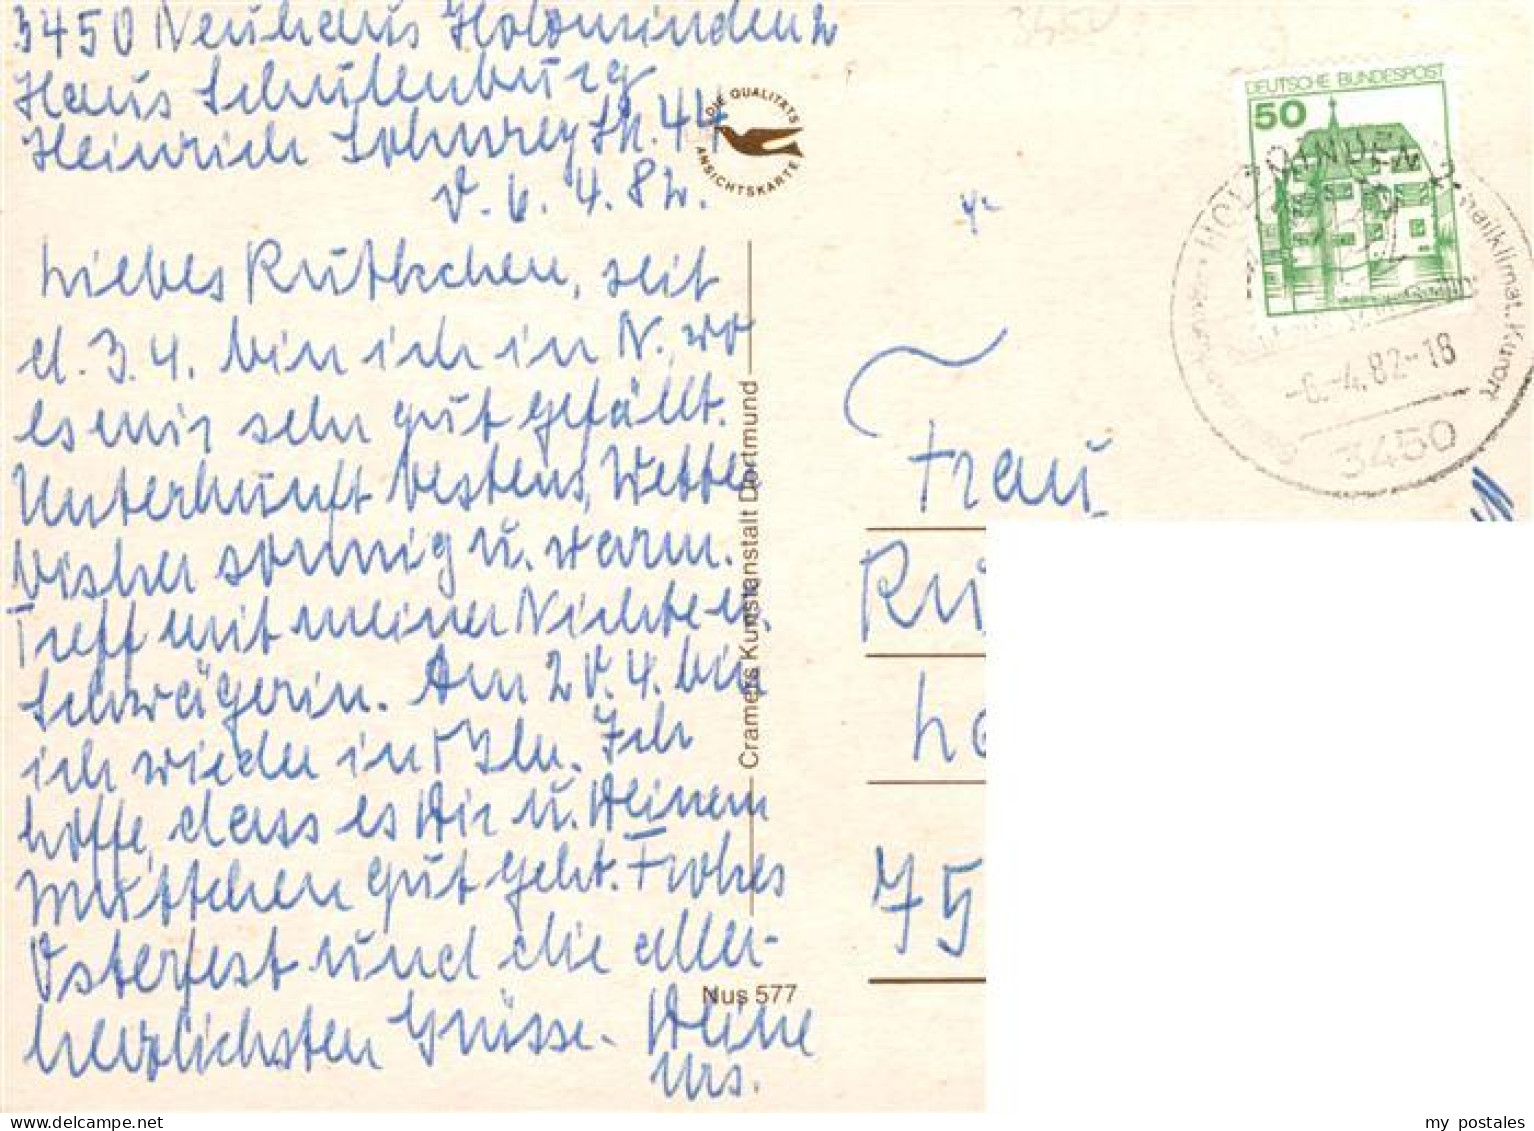 3450 Neuhaus Holzminden 2
Haus Schulenburg
Heinrich Sohnrey Str. 44
d. 6. 4. 82.
Liebes Ruthchen, seit
d. 3. 4. bin ich in N. wo
es mir sehr gut gefällt.
Unterkunft bestens, Wetter
bisher sonnig u. warm.
Treff mit meiner Nichte u.
Schwägerin. Am 20. 4. bin
ich wieder in Bln. Ich
hoffe, dass es Dir u. Deinem
Muttchen gut geht. Frohes
Osterfest und die aller-
herzlichsten Grüsse. Deine
Urs.
DIE QUALITÄTS
ANSICHTSKARTE
Cramers Kunstanstalt Dortmund
Nus 577
3450
DEUTSCHE BUNDESPOST
50
HOLZMINDEN 2
heilklimat. Kurort
-6.-4.82-18
3450
Frau
Ru
75
my postales